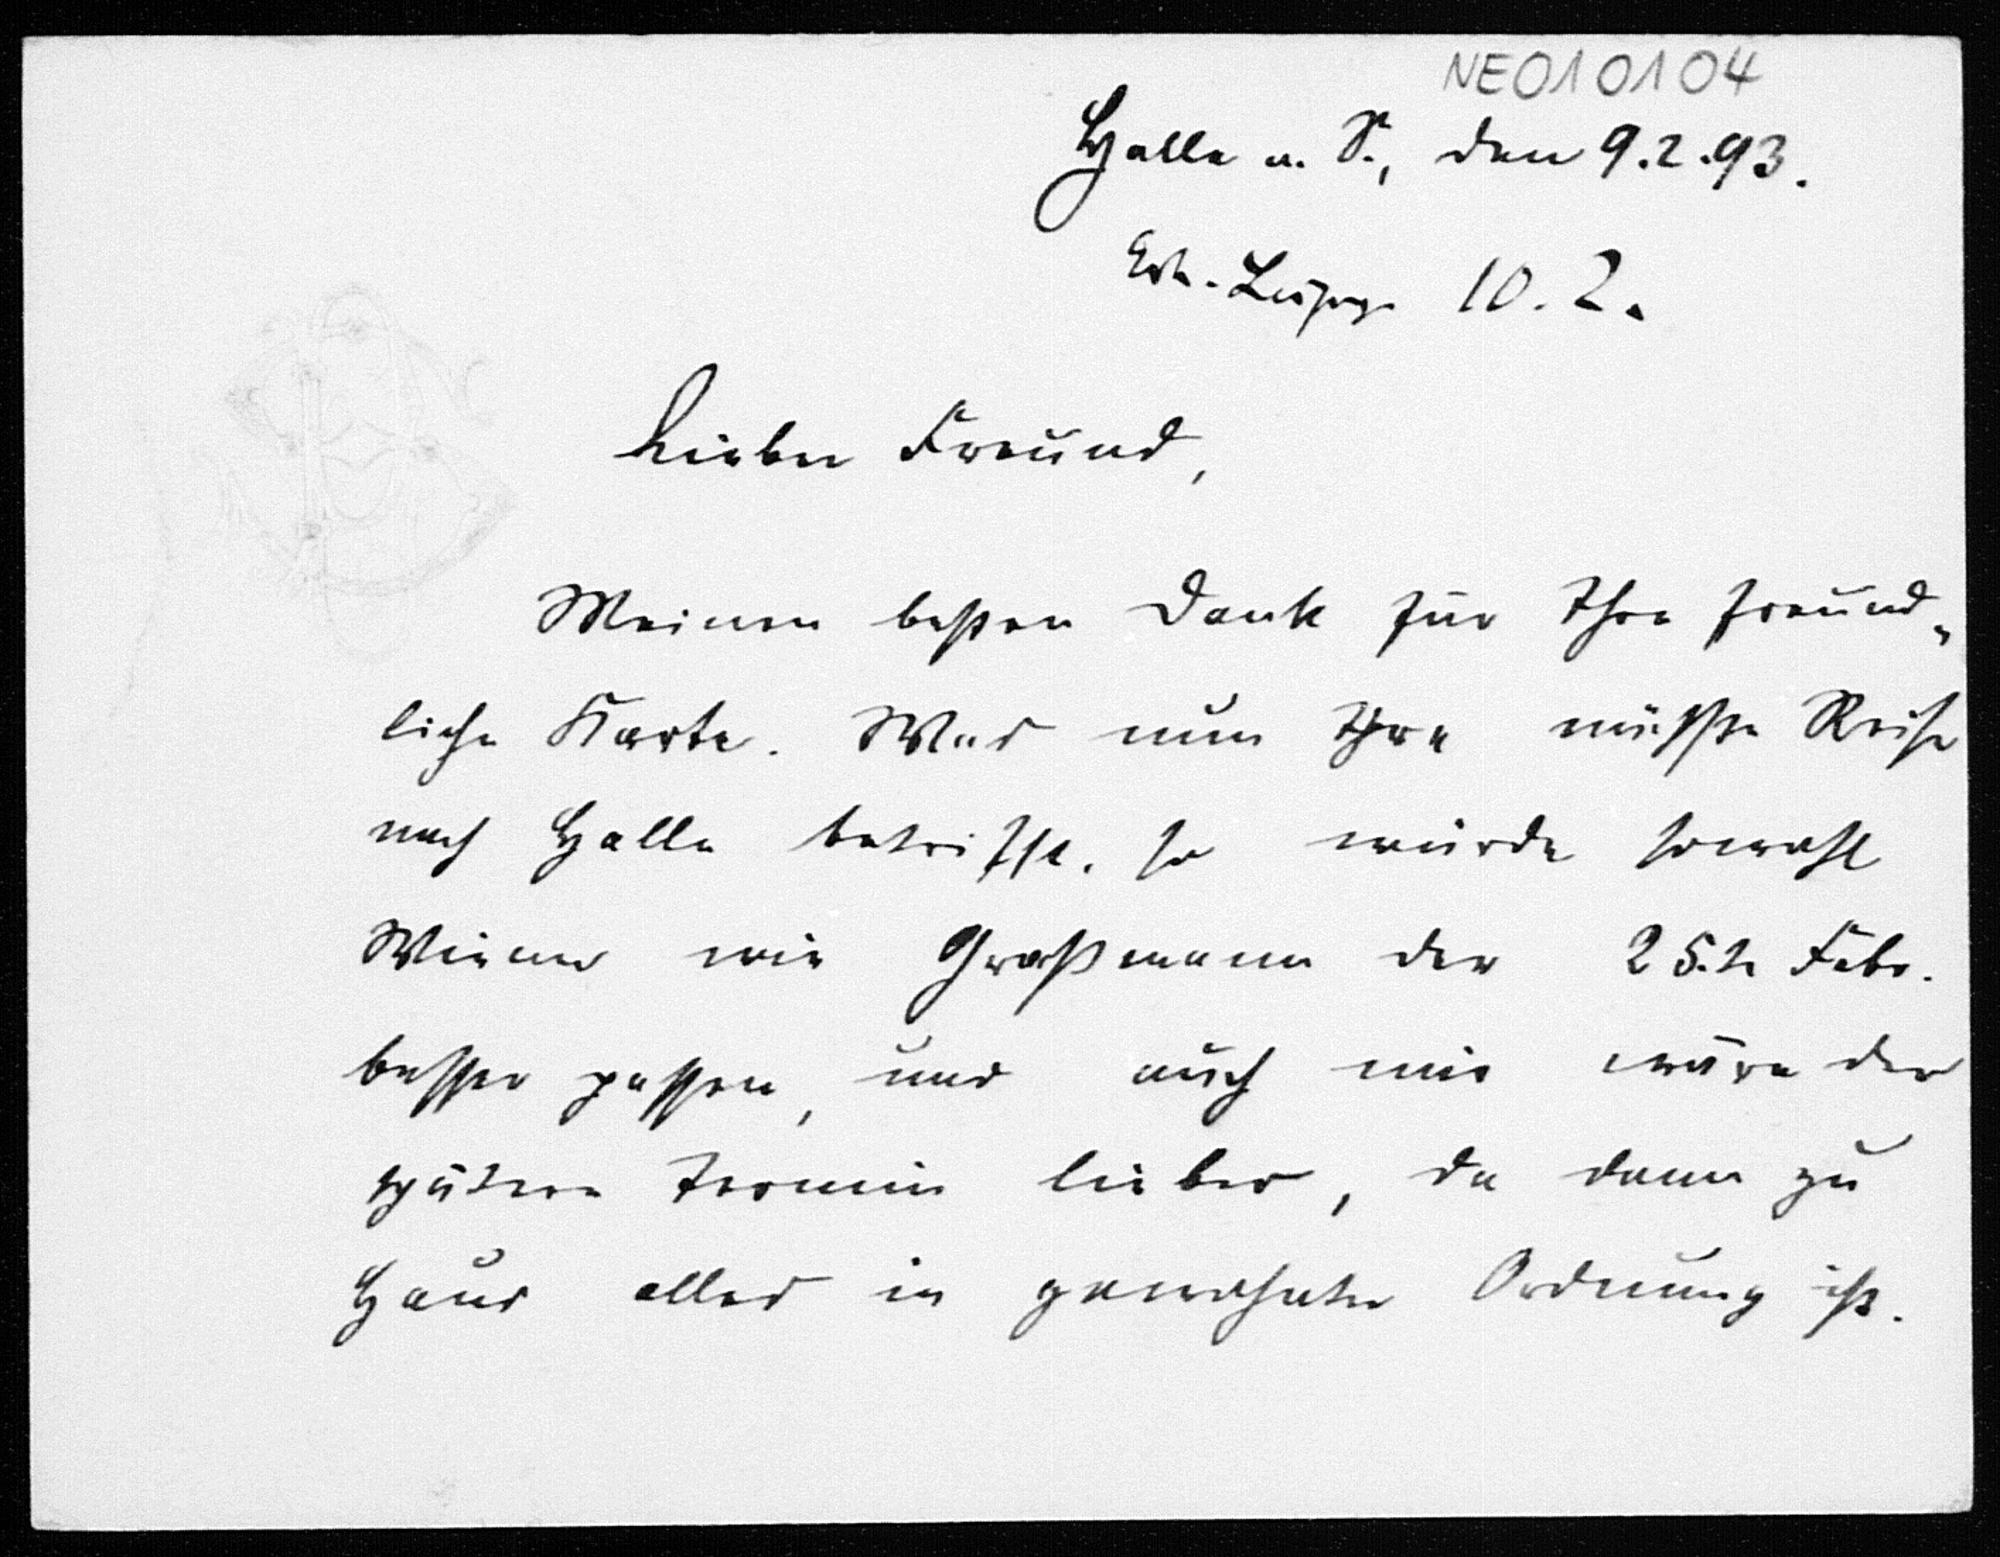 NE010104
Halle a. S., den 9.2.93.
Erh. Leipzig 10.2.
Lieber Freund,
Meinen besten Dank für Ihre freund-
liche Karte. Was nun Ihre nächste Reise
nach Halle betrifft, so würde sowohl
Wiener wie Graßmann der 25.te Febr.
besser passen, und auch mir wäre der
spätere Termin lieber, da dann zu
Haus alles in gewohnter Ordnung ist.